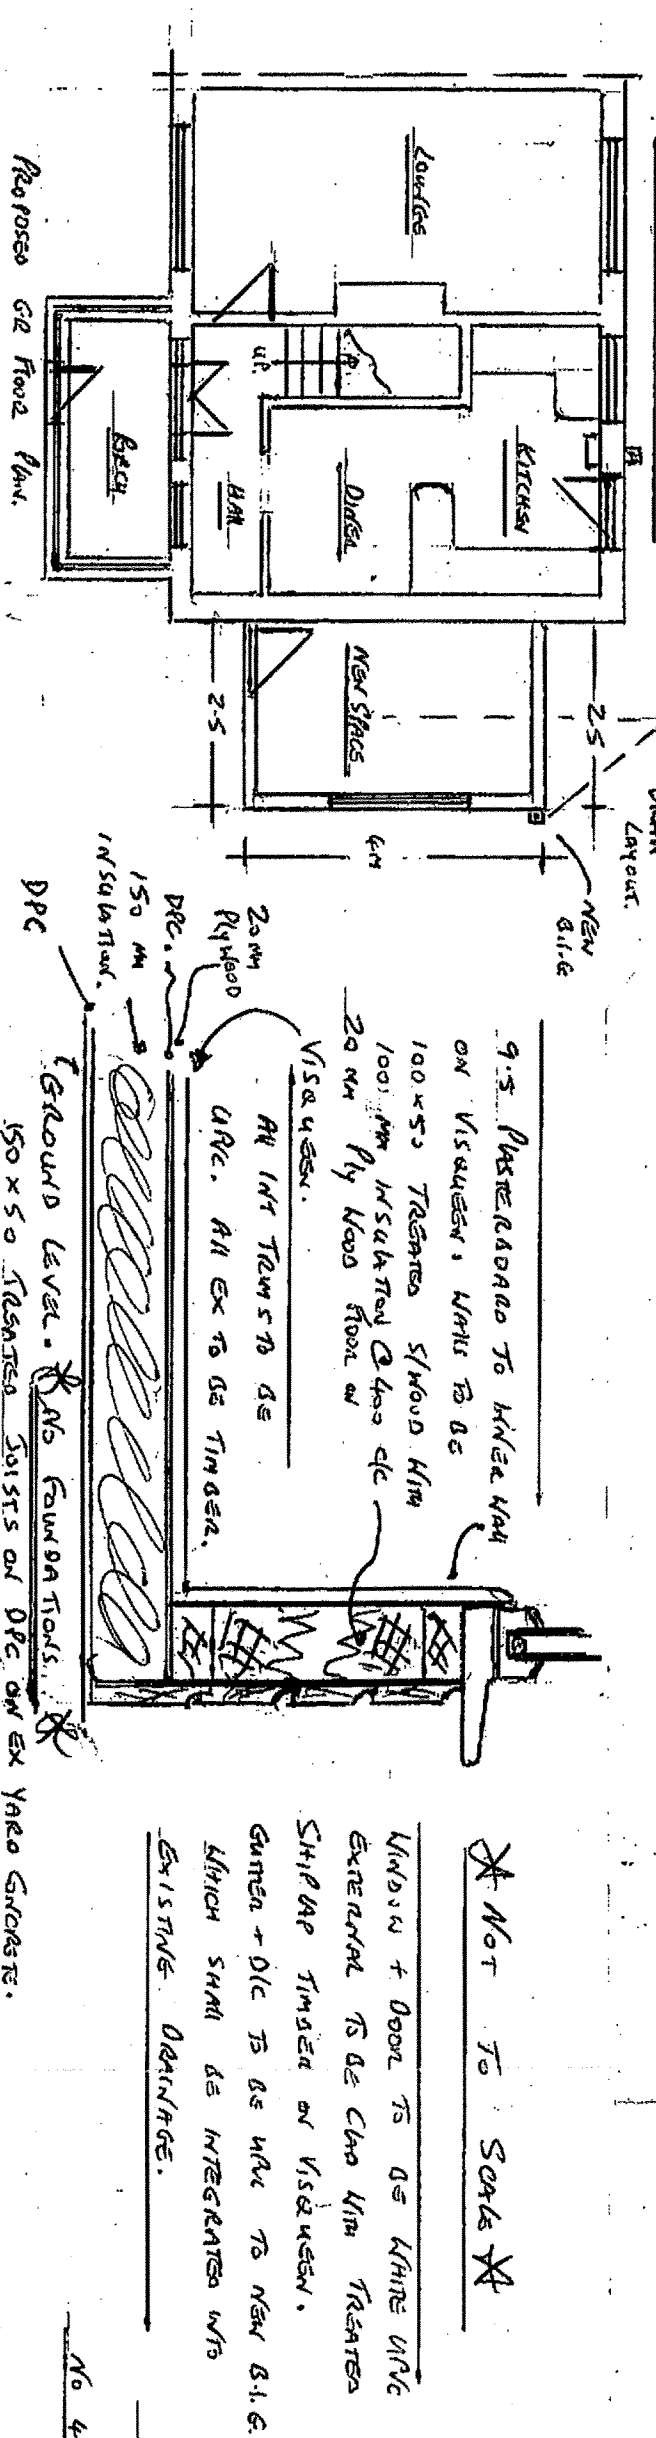 LOUNGE
UP.
KITCHEN
DINER
HALL
PORCH
NEW SPACE
2.5
2.5
4M
LAYOUT.
NEW
B.I.G
PROPOSED GR FLOOR PLAN.
9.5 PLASTERBOARD TO INNER WALL
ON VISQUEEN. WALLS TO BE
100 x 50 TREATED S/WOOD WITH
100 MM INSULATION @ 400 C/C
20 MM PLY WOOD FLOOR ON
VISQUEEN.
ALL INT TRIMS TO BE
UPVC. ALL EX TO BE TIMBER.
20MM
PLYWOOD
DPC.
150 MM
INSULATION.
DPC
GROUND LEVEL. * NO FOUNDATIONS. *
150 x 50 TREATED JOISTS ON DPC ON EX YARD CONCRETE.
* NOT TO SCALE *
WINDOW + DOOR TO BE WHITE UPVC
EXTERNAL TO BE CLAD WITH TREATED
SHIPLAP TIMBER ON VISQUEEN.
GUTTER + D/C TO BE UPVC TO NEW B.I.G.
WHICH SHALL BE INTEGRATED INTO
EXISTING DRAINAGE.
No 4